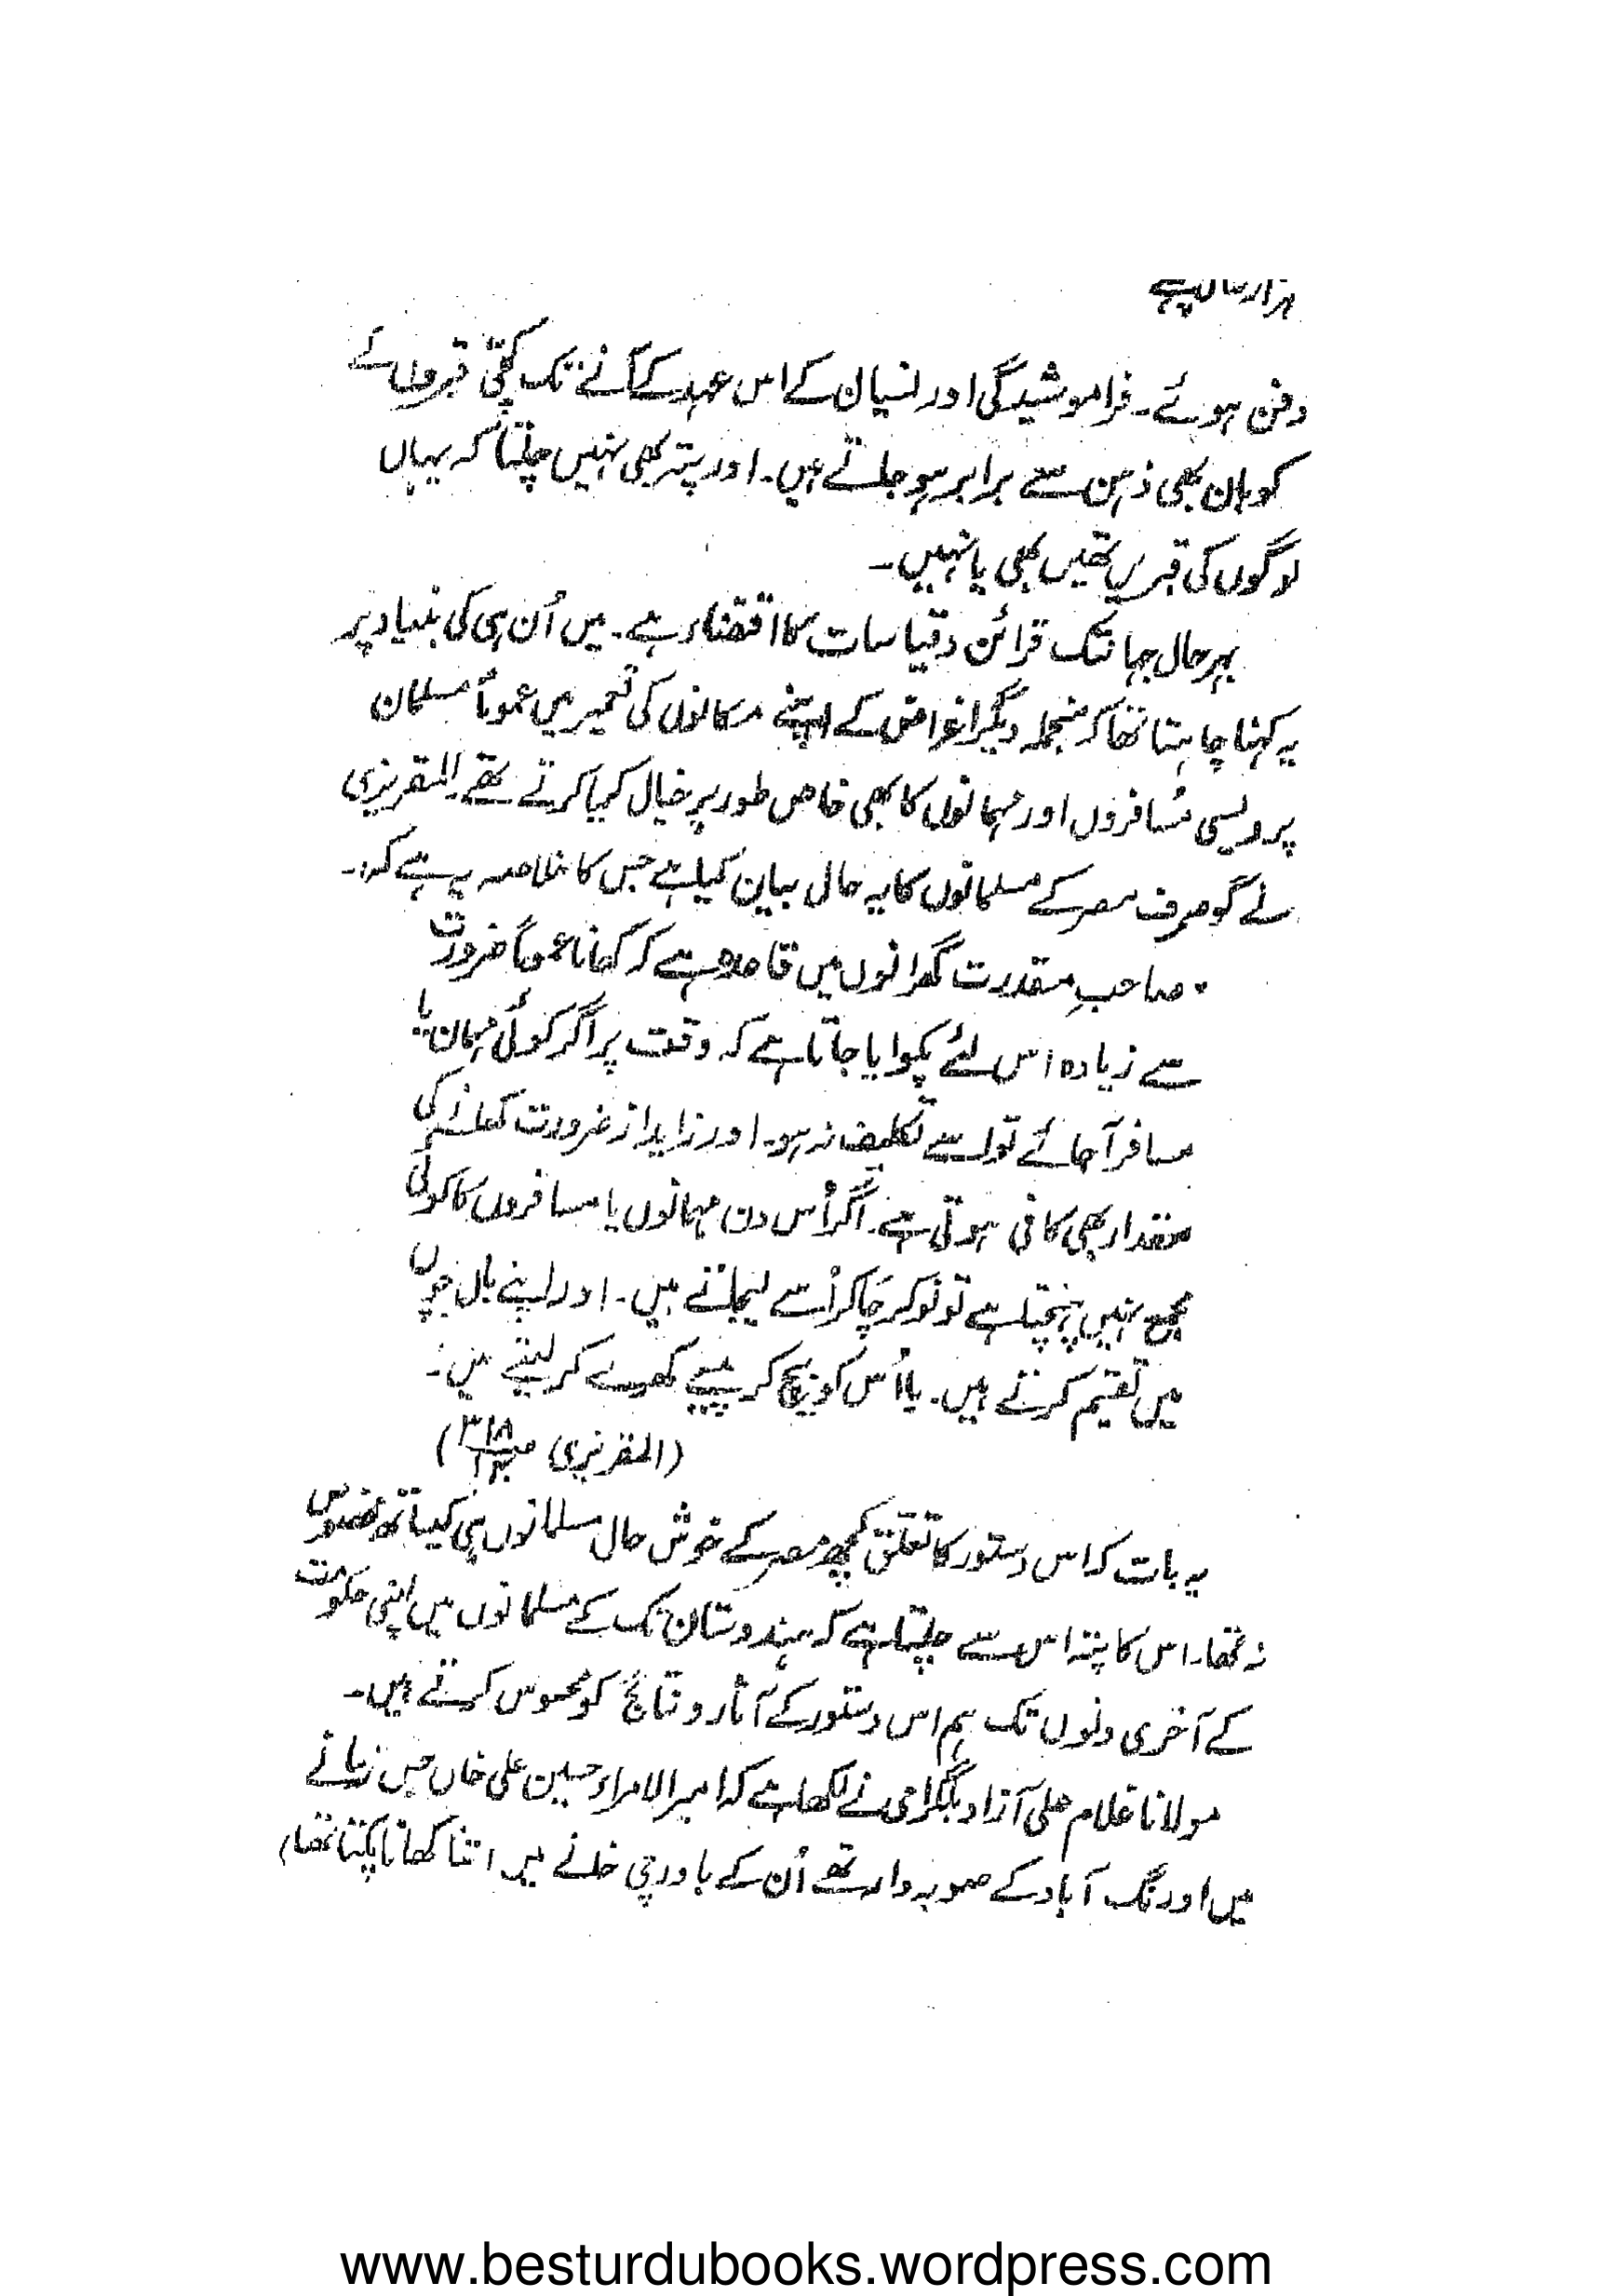 ہزار سال پہلے
دفن ہوئے۔ فراموشیدگی اور نسیان کے اس عہد کے آنے تک کچی قبروں کے
کوہان بھی زمین سے برابر ہو جاتے ہیں۔ اور پتہ بھی نہیں چلتا کہ یہاں
لوگوں کی قبریں تھیں بھی یا نہیں۔
بہرحال جہانتک قرائن وقیاسات کا اقتضاء ہے۔ میں اُن ہی کی بنیاد پر
یہ کہنا چاہتا تھا کہ منجملہ دیگر اغراض کے اپنے مکانوں کی تعمیر میں عموماً مسلمان
پردیسی مُسافروں اور مہمانوں کا بھی خاص طور پر خیال کیا کرتے تھے۔ المقریزی
نے گو صرف مصر کے مسلمانوں کا یہ حال بیان کیا ہے جس کا خلاصہ یہ ہے کہ:۔
"صاحبِ مقدرت گھرانوں میں قاعدہ ہے کہ کھانا عموماً ضرورت
سے زیادہ اس لئے پکوایا جاتا ہے کہ وقت پر اگر کوئی مہمان یا
مسافر آجائے تو اسے تکلیف نہ ہو۔ اور زاید از ضرورت کھانے کی
مقدار بھی کافی ہوتی ہے۔ اگر اُس دن مہمانوں یا مسافروں کا کوئی
مجمع نہیں پہنچتا ہے تو نوکر چاکر اُسے لیجاتے ہیں۔ اور اپنے بال بچوں
میں تقسیم کرتے ہیں۔ یا اُس کو بیچ کر پیسے کھرے کر لیتے ہیں:
(المقریزی ص۳۱۸)
یہ بات کہ اس دستور کا تعلق کچھ مصر کے خوش حال مسلمانوں ہی کیساتھ مخصوص
نہ تھا۔ اس کا پتہ اس سے چلتا ہے کہ ہندوستان تک کے مسلمانوں میں اپنی حکومت
کے آخری دنوں تک ہم اس دستور کے آثار و نتائج کو محسوس کرتے ہیں۔
مولانا غلام علی آزاد بلگرامی نے لکھا ہے کہ امیر الامراء حسین علی خاں جس زمانے
میں اورنگ آباد کے صوبہ دار تھے اُن کے باورچی خانے میں اتنا کھانا پکتا تھا،
www.besturdubooks.wordpress.com